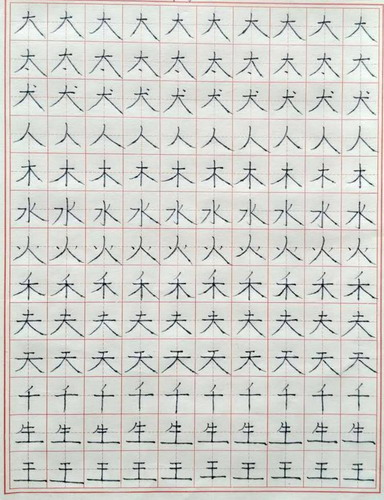 大大大大大大大大大大
太太太太太太太太太太
犬犬犬犬犬犬犬犬犬犬
人人人人人人人人人人
木木木木木木木木木木
水水水水水水水水水水
火火火火火火火火火火
禾禾禾禾禾禾禾禾禾禾
夫夫夫夫夫夫夫夫夫夫
天天天天天天天天天天
千千千千千千千千千千
生生生生生生生生生生
王王王王王王王王王王